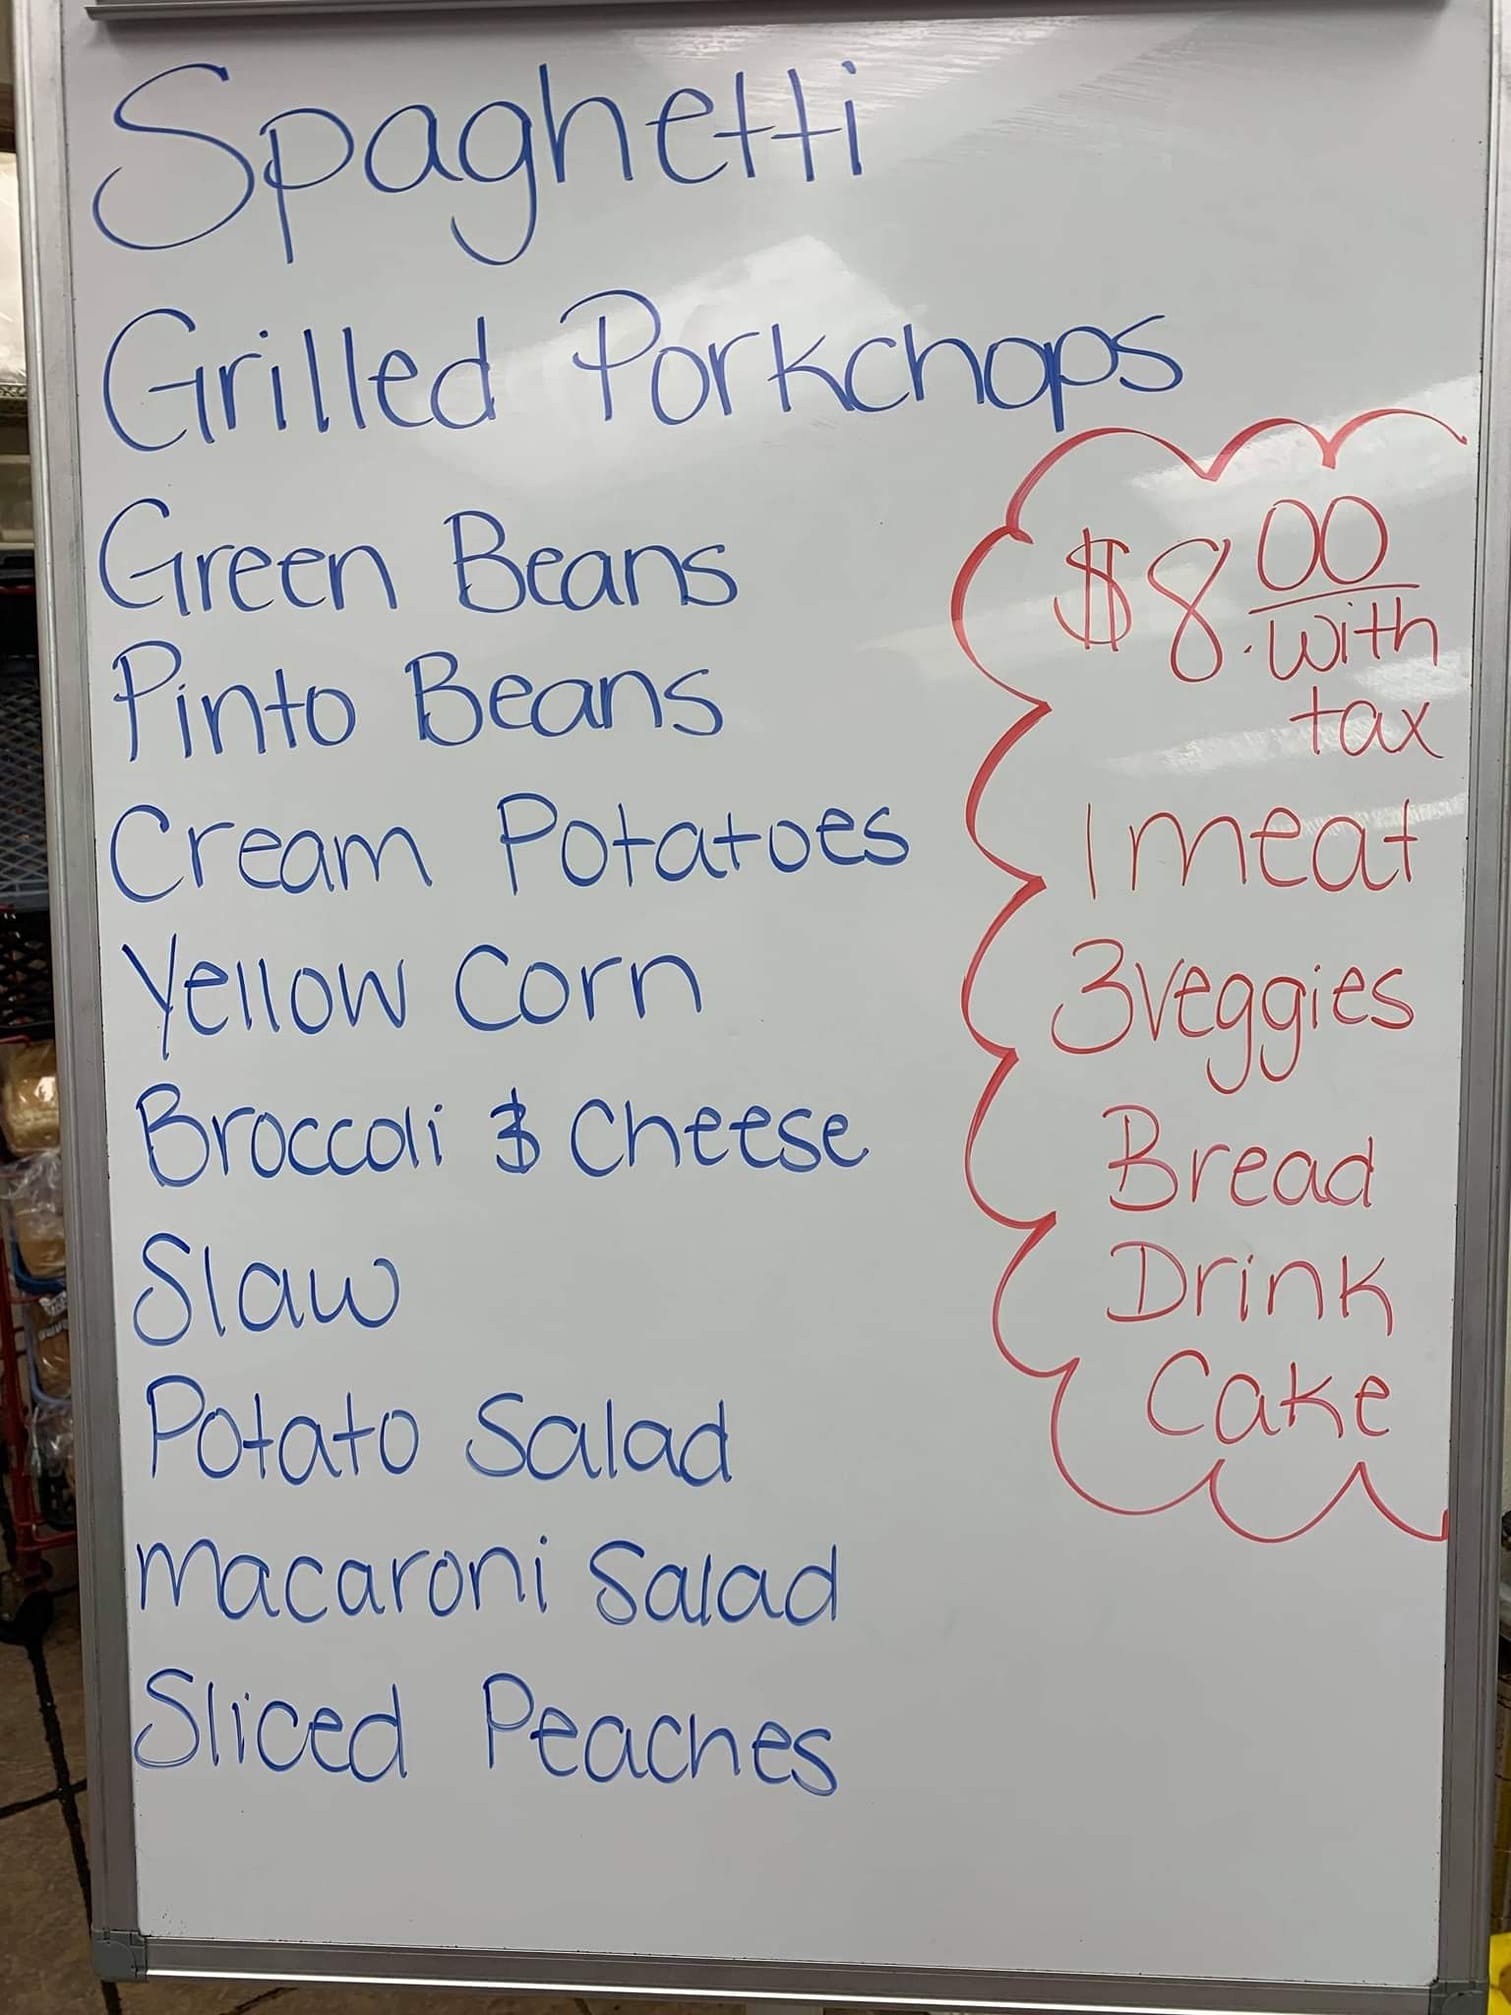 Spaghetti
Grilled Porkchops
Green Beans
Pinto Beans
Cream Potatoes
Yellow Corn
Broccoli & Cheese
Slaw
Potato Salad
Macaroni Salad
Sliced Peaches
$8.00
with
tax
1 meat
3 veggies
Bread
Drink
Cake